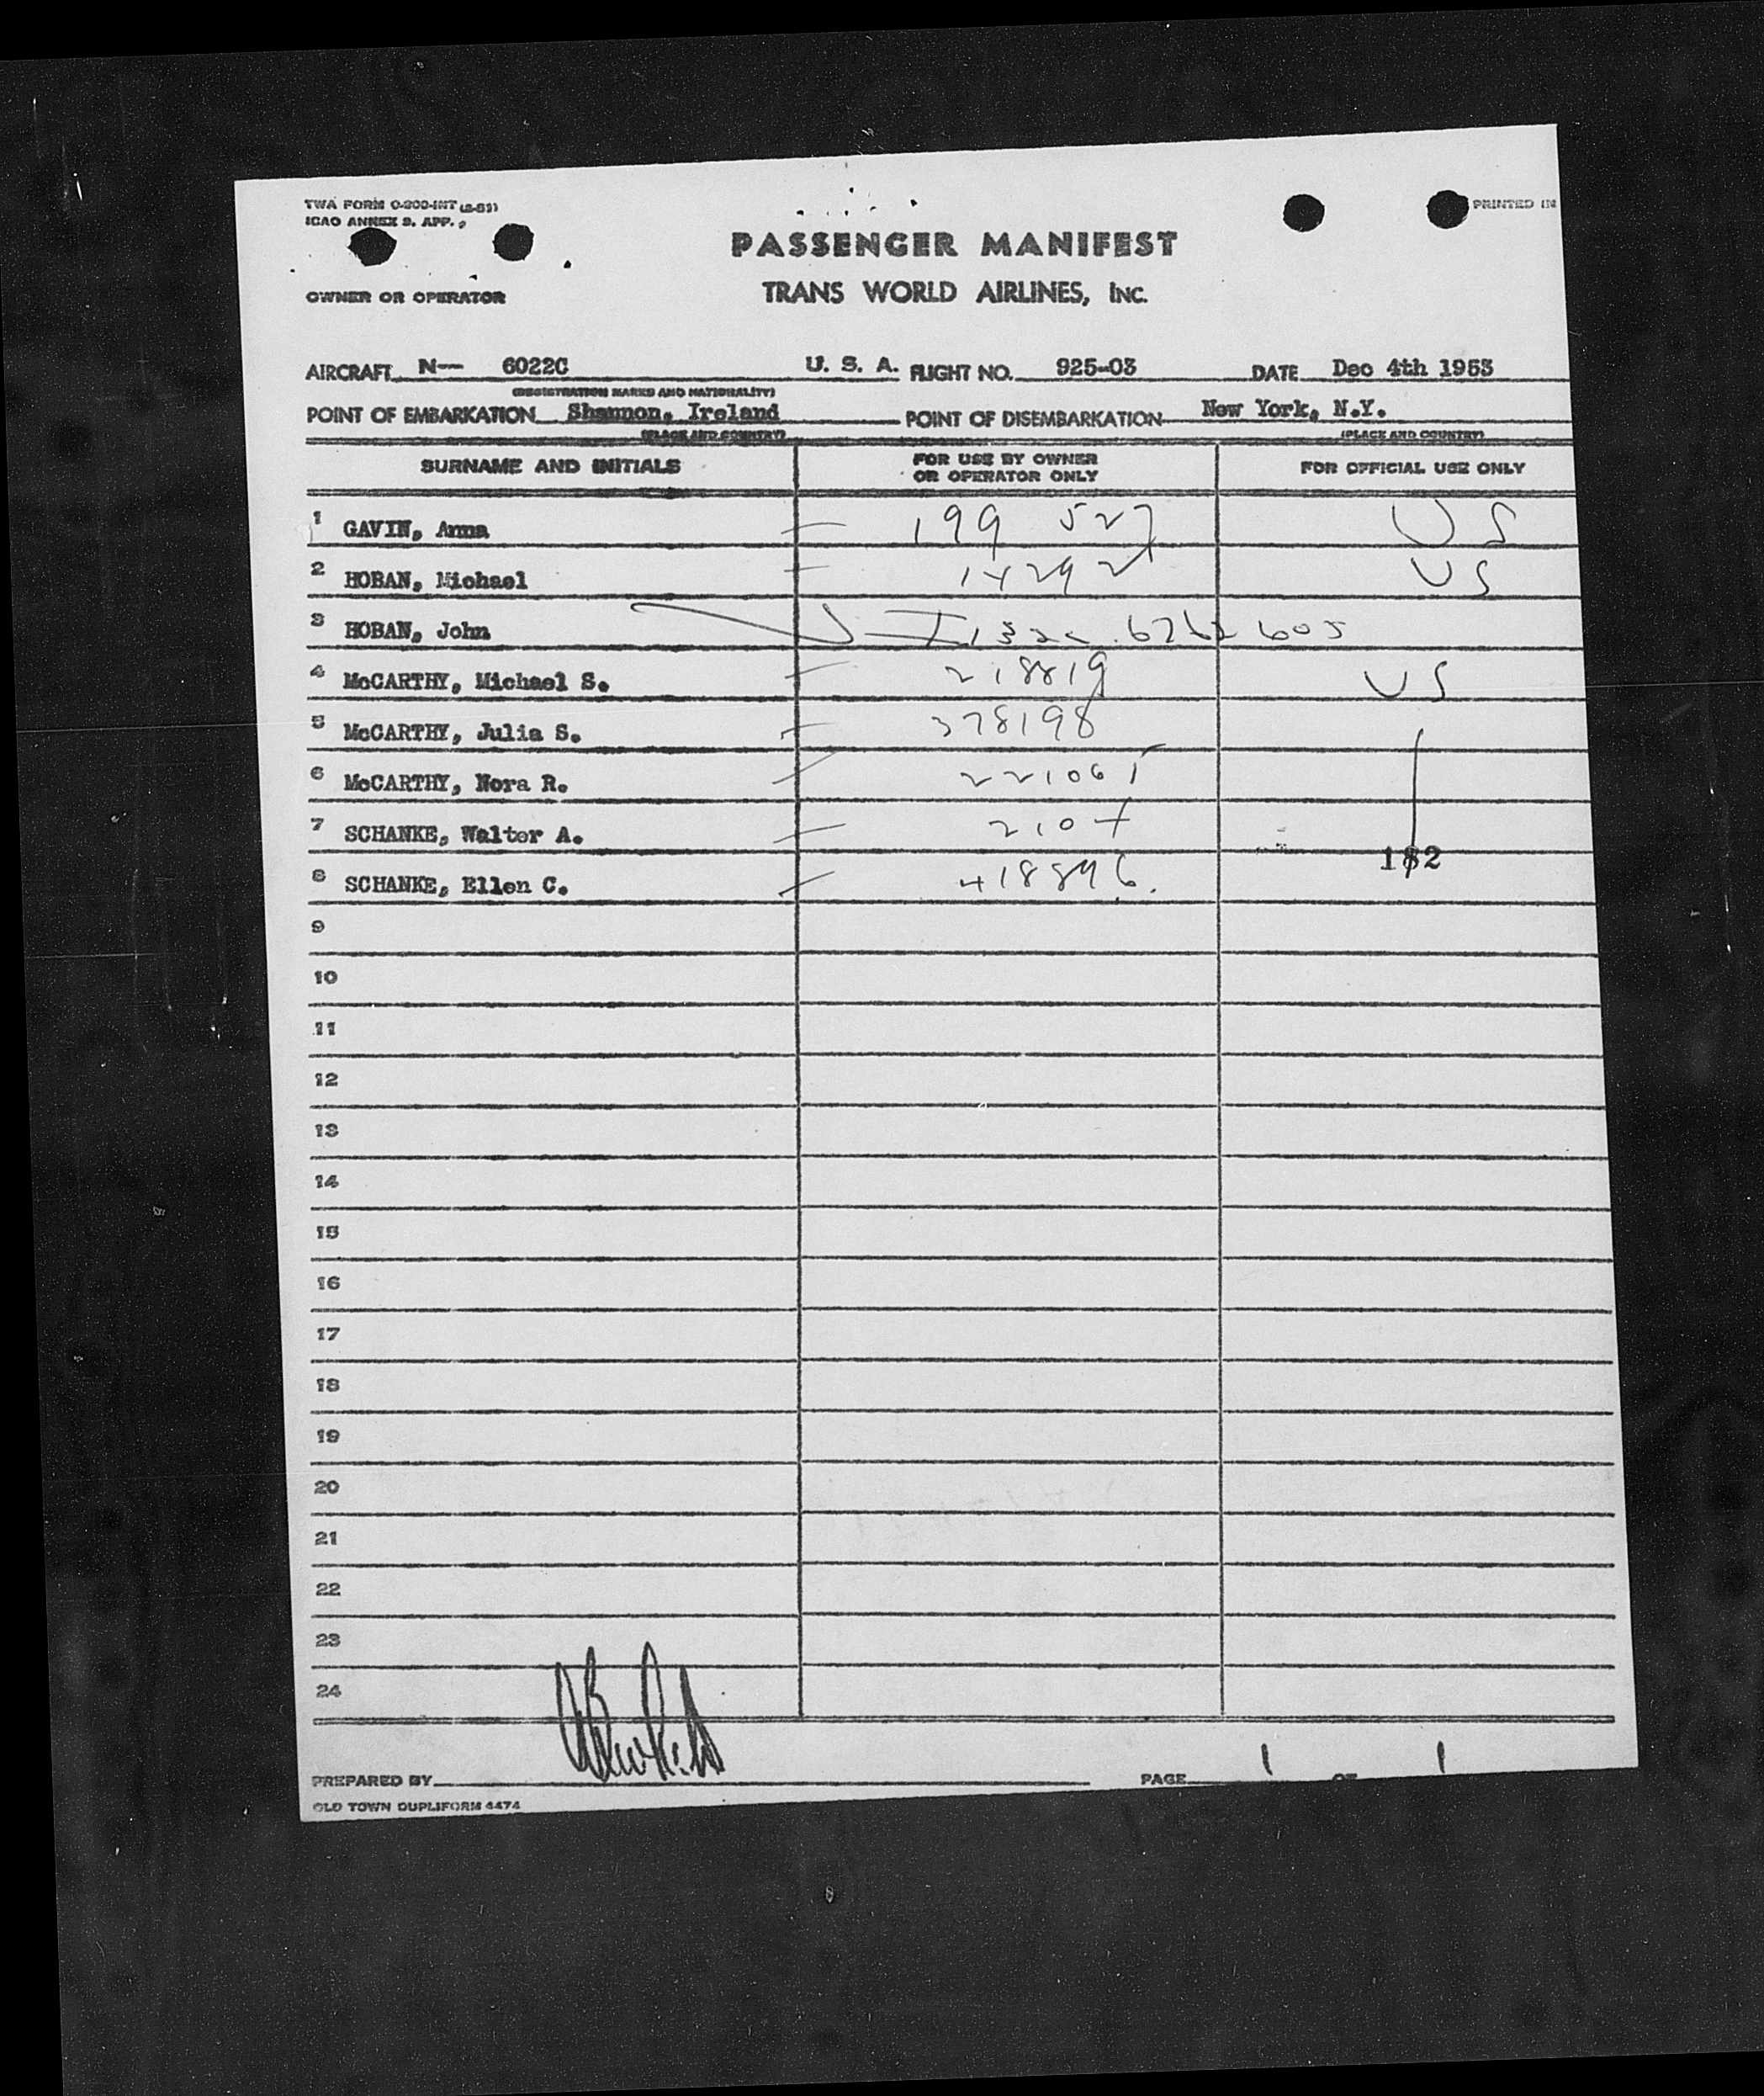 TWA FORM O-200-INT (2-51)
ICAO ANNEX 9. APP.
PRINTED IN
PASSENGER MANIFEST
OWNER OR OPERATOR
TRANS WORLD AIRLINES, INC.
AIRCRAFT N— 6022C U. S. A. FLIGHT NO. 925-03 DATE Dec 4th 1953
(REGISTRATION MARKS AND NATIONALITY)
POINT OF EMBARKATION Shannon, Ireland POINT OF DISEMBARKATION New York, N.Y.
(PLACE AND COUNTRY) (PLACE AND COUNTRY)
SURNAME AND INITIALS FOR USE BY OWNER OR OPERATOR ONLY FOR OFFICIAL USE ONLY
1 GAVIN, Anna 199 527 US
2 HOBAN, Michael US
3 HOBAN, John
4 McCARTHY, Michael S. 218819 US
5 McCARTHY, Julia S. 378198
6 McCARTHY, Nora R.
7 SCHANKE, Walter A.
182
8 SCHANKE, Ellen C. 418896.
9
10
11
12
13
14
15
16
17
18
19
20
21
22
23
24
PREPARED BY PAGE 1 OF 1
OLD TOWN DUPLIFORM 4474